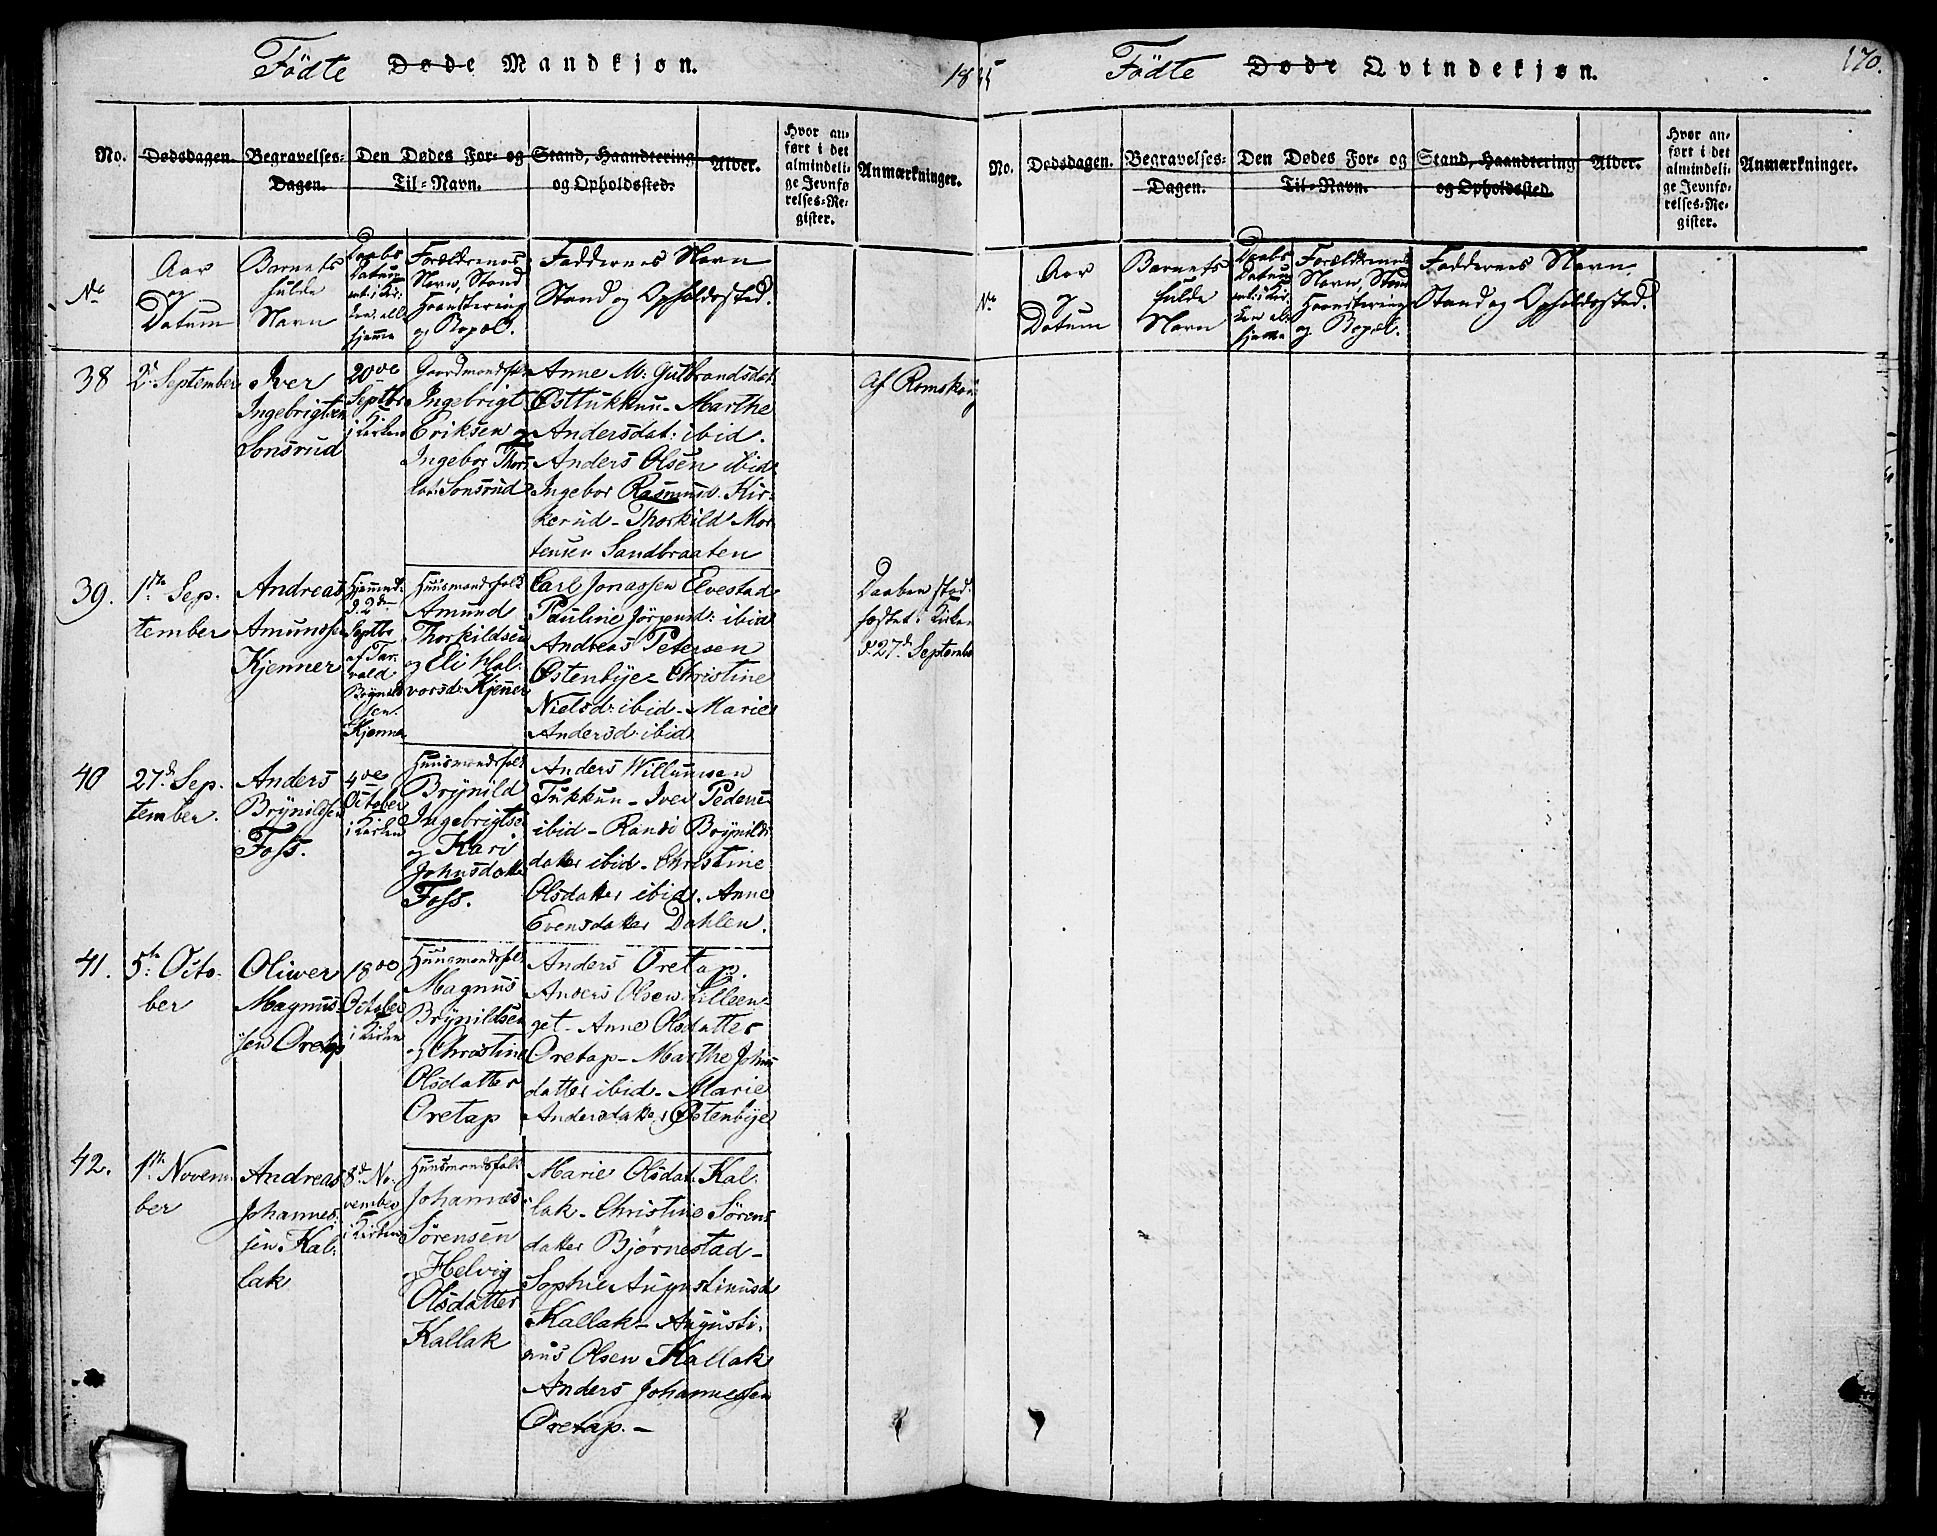 Födte Døde Mandkjøn.
18
No.
Dødsdagen.
Begravelses-
Dagen.
Den Dødes For- og
Til-Navn.
Stand, Haandtering
og Opholdssted.
Alder.
Hvor an-
ført i det
almindeli-
ge Jevnfø
relses-Re-
gister.
Anmærkninger.
No
Aar
og
Datum
Barnets
fulde
Navn
Daabs
Datum
Forældrenes
Navn, Stand
Haandtering
og Bopæl.
Faddernes Navn
Stand og Opholdssted.
38
2d September
Iver
Ingebrigtsen
Sonsrud
20de
Septbr
i Kirken
Gaardmandsfolk
Ingebrigt
Eriksen og
Ingebor Thors
dat: Sonsrud
Anne M: Gulbrandsdat:
Østtukkuu - Marthe
Andersdat: ibid.
Anders Olsen ibid
Ingebor Rasmusd. Kir-
kerud - Thorkild Mor-
tensen Sandbraaten
Af Romskoug
39.
1ste Sep-
tember
Andreas
Amundsen
Kjenner
Hjemmed.
d. 2den
Septbr
af Tar-
vald
Brynild
sen
Kjenner
Huusmandsfolk
Amund
Thorkildsen
og Eli Hal-
vorsd: Kjenner
Carl Jonassen Elvestad
Pauline Jörgensd: ibid
Andreas Petersen
Østenbye - Christine
Nielsd: ibid - Marie
Andersd: ibid
Daaben stad-
fæstet i Kirken
d. 27d Septembr
40
27d Sep-
tember.
Anders
Brynildsen
Foss.
4de
October
i Kirken
Huusmandsfolk
Brynild
Ingebrigtsen
og Kari
Johnsdatter
Foss.
Anders Willumsen
Tukkun - Iver Pedersen
ibid - Randi Brynilds
datter ibid - Christine
Olsdatter ibid. Anne
Evensdatter Dahlen.
41.
5te Octo-
ber
Oliwer
Magnus-
sen Oretap
18de
October
i Kirken
Huusmandsfolk
Magnus
Brynildsen
og Christine
Olsdatter
Oretap
Anders Oretap.
Anders Olsen Lilleen-
get - Anne Olsdatter
Oretap - Marthe Johns
datter ibid - Marie
Andersdatter Østenbye
42.
1ste Novem-
ber
Andreas
Johannes-
sen Kal-
lak
8de No-
vember
i Kirken
Huusmandsfolk
Johannes
Sörensen
og Helvig
Olsdatter
Kallak
Marie Olsdat: Kal-
lak - Christine Sörens
datter Bjørnestad -
Sophie Augustinusd
Kallak - Augusti-
nus Olsen Kallak
Anders Johannessen
Oretap. -
Födte Døde Qvindekjøn.
170.
No.
Dødsdagen.
Begravelses-
Dagen.
Den Dødes For- og
Til-Navn.
Stand, Haandtering
og Opholdssted.
Alder.
Hvor an-
ført i det
almindeli-
ge Jevnfø-
relses-Re-
gister.
Anmærkninger.
No
Aar
og
Datum
Barnets
fulde
Navn
Daabs
Datum
Forældrenes
Navn, Stand
Haandtering
og Bopæl.
Faddernes Navn,
Stand og Opholdssted.